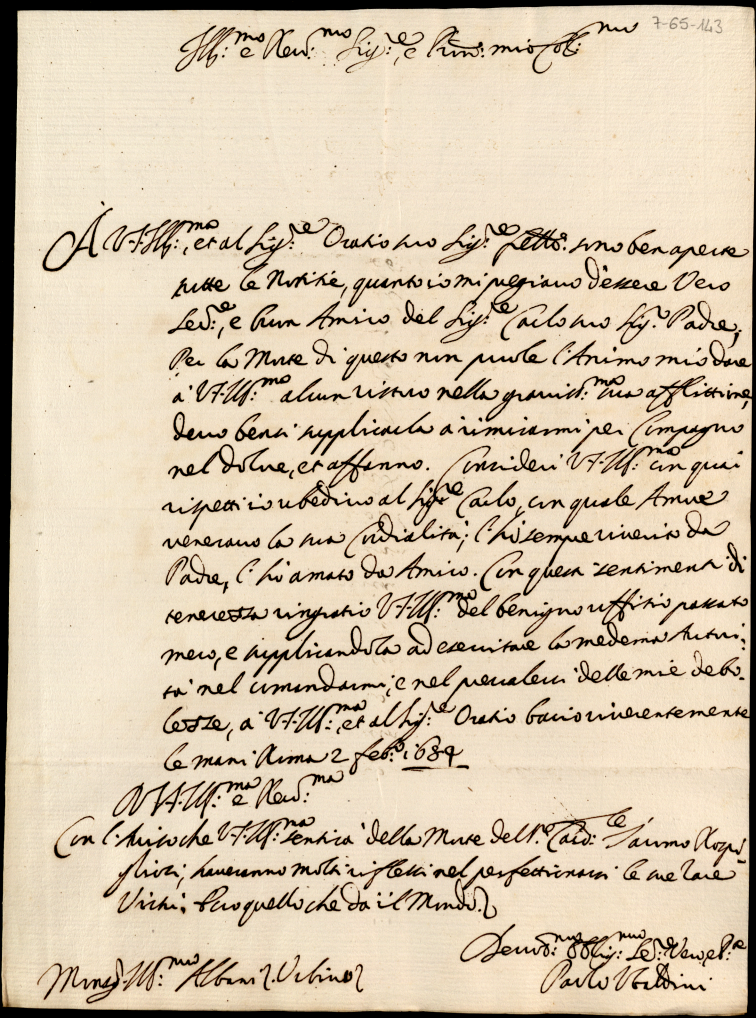 7-65-143
Ill:mo e Rev:mo Sig:re, e Pron: mio Col:mo
À V.S.Ill:ma, et al Sig:re Oratio suo Sig:re sono ben aperte
tutte le Notitie, quanto io mi pregiavo d'essere Vero
Ser:re, e buon Amico del Sig:re Carlo suo Sig:r Padre;
Per la Morte di questo non puole l'Animo mio dare
à V.S.Ill:ma alcun ristoro nella graviss:ma sua afflittione,
devo bensi supplicarla a rimirarmi per Compagno
nel dolore, et affanno. Consideri V.S.Ill:ma con quai
rispetti io ubedivo al Sig:re Carlo, con quale Amore
veneravo la sua Cordialità; l'hò sempre riverito da
Padre, l'hò amato da Amico. Con questi sentimenti di
tenerezza ringratio V.S.Ill:ma del benigno uffitio passato
meco, e supplicandola ad esercitare la medema Autori:
tà nel comandarmi, e nel prevalersi delle mie debo-
lezze, à V.S.Ill:ma, et al Sig:re Oratio bacio riverentemente
le mani Roma 2 feb:o 1684
D V.S.Ill:ma e Rev:ma
Con l'Aviso che V.S.Ill:ma sentirà della Morte del S.r Card:le Giacomo Rospi-
gliosi, haveranno molti riflessi nel perfettionarsi le sue rare
Virtù; Ecco quello che dà il Mondo.
Devot:mo Oblig:mo Ser: Vero,
Monsig: Ill:mo Albani. Urbino
Paolo Ubaldini